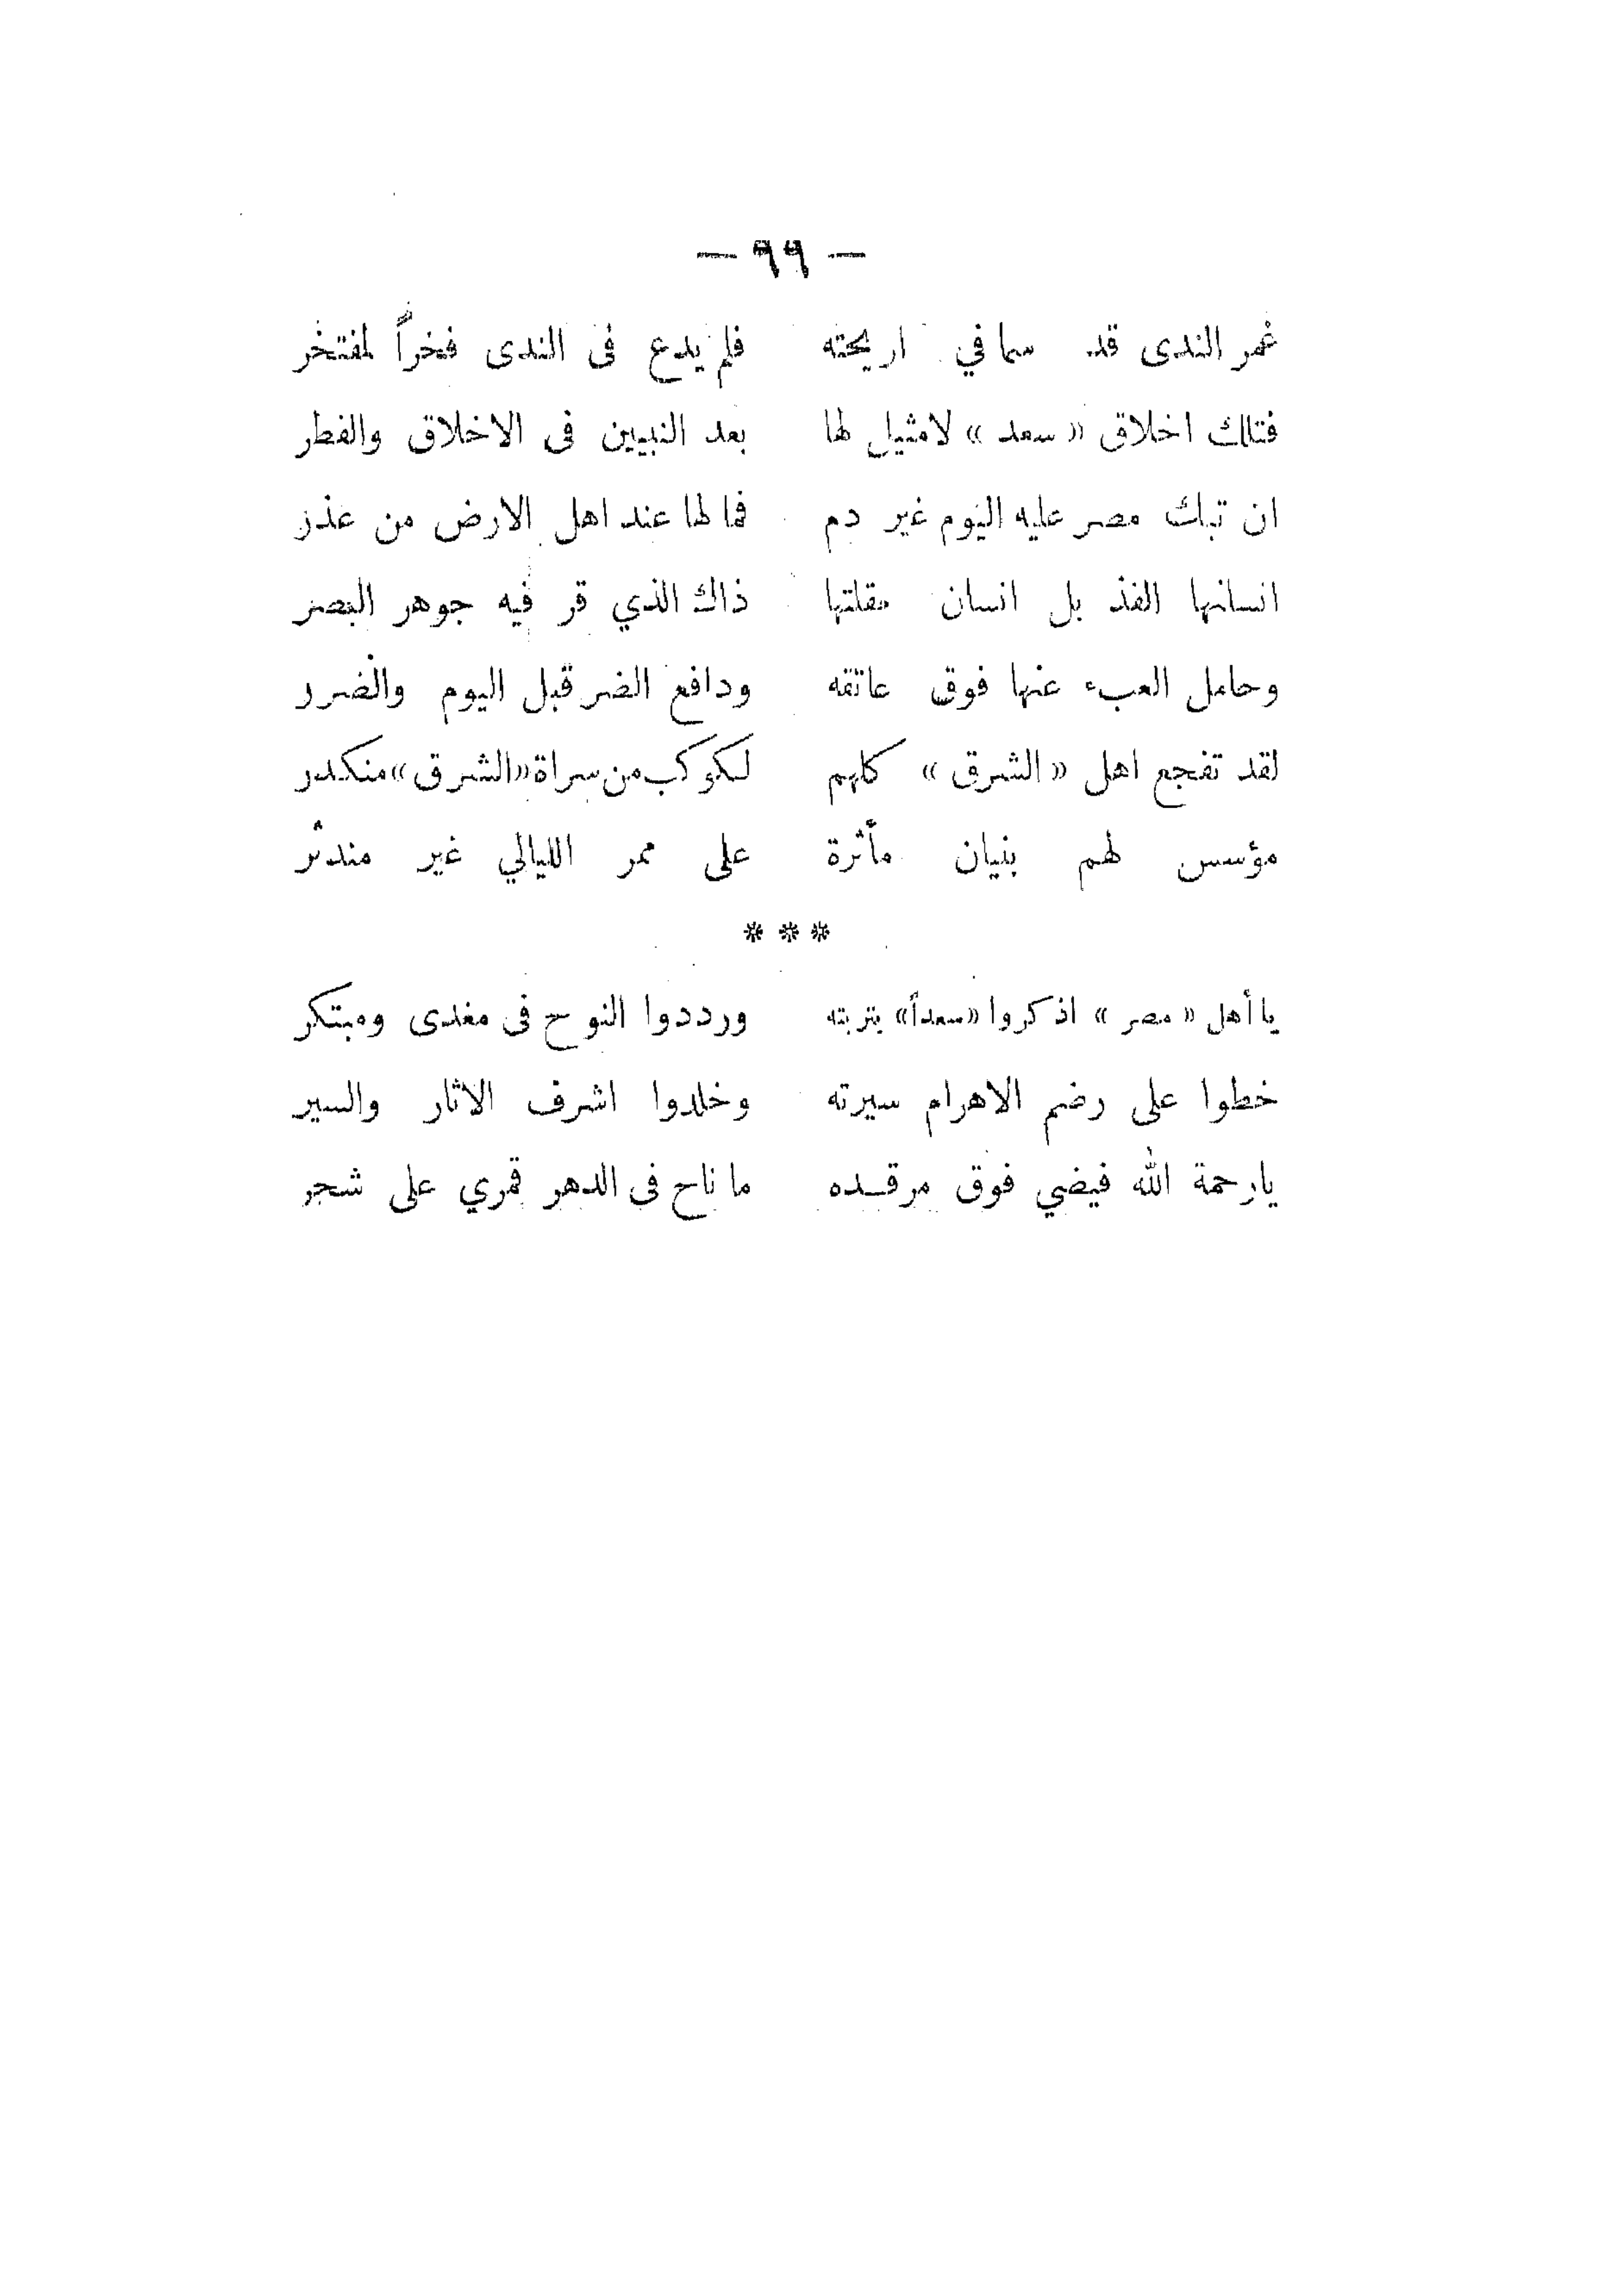 — ٩٩ —
غمر الندى قد سما في اريحته فلم يدع فى الندى فخراً لمفتخر
فتلك اخلاق «سعد» لامثيل لها بعد النبيين فى الاخلاق والفطر
ان تبك مصر عليه اليوم غير دم فما لها عند اهل الارض من عذر
انسانها الفذ بل انسان مقلتها ذاك الذي قر فيه جوهر البصر
وحامل العبء عنها فوق عاتقه ودافع الضر قبل اليوم والضرر
لقد تفجع اهل «الشرق» كلهم لكوكب من سراة «الشرق» منكدر
مؤسس لهم بنيان مأثرة على ممر الليالي غير مندثر
* * *
يا أهل «مصر» اذكروا «سعداً» بتربته ورددوا النوح فى مغدى ومبتكر
خطوا على رضم الاهرام سيرته وخلدوا اشرف الاثار والسير
يارحمة الله فيضي فوق مرقده ما ناح فى الدهر قمري على شجر